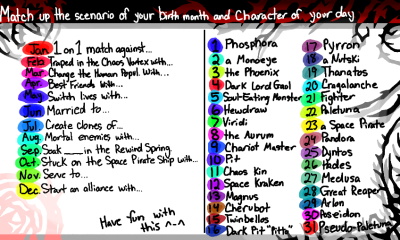 Match up the scenario of your birth month and Character of your day
Jan 1 on 1 match against...
Feb Traped in the Chaos Vortex with...
Mar Change the Human Popul. With...
Apr Best Friends With...
May Switch lives with...
Jun Married to...
Jul Create clones of...
Aug Mortal enemies with...
Sep Soak ___ in the Rewind Spring
Oct Stuck on the Space Pirate Ship with...
Nov Serve to...
Dec Start an alliance with...
Have fun with
this ^-^
1 Phosphora
2 a Monoeye
3 the Phoenix
4 Dark Lord Gaol
5 Soul-Eating Monster
6 Hewdraw
7 Viridi
8 the Aurum
9 Chariot Master
10 Pit
11 Chaos Kin
12 Space Kraken
13 Magnus
14 Cherubot
15 Twinbellos
16 Dark Pit "Pittoo"
17 Pyrron
18 a Nutski
19 Thanatos
20 Cragalanche
21 Fighter
22 Palutena
23 a Space Pirate
24 Pandora
25 Dyntos
26 Hades
27 Medusa
28 Great Reaper
29 Arlon
30 Poseidon
31 Pseudo-Palutena